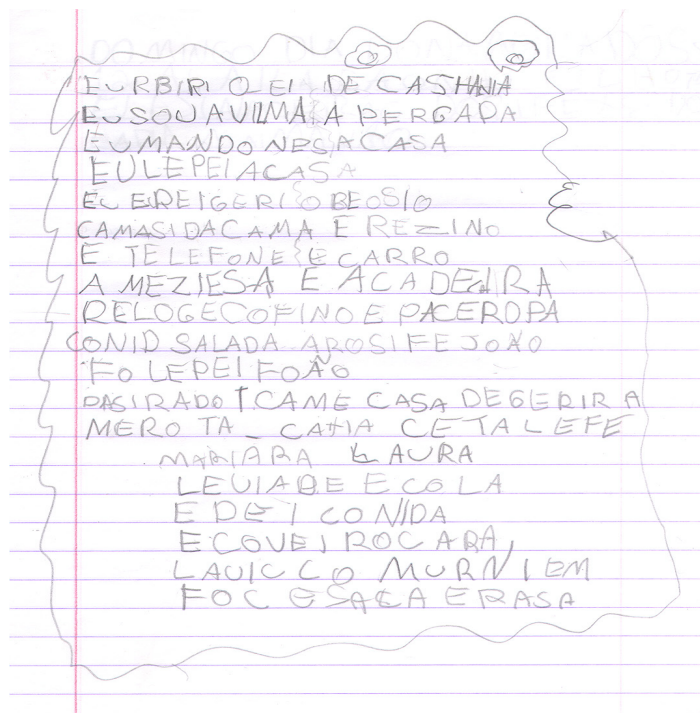 EURBIRI O EI DE CASHANIA
EU SOU A VILMA A PERGADA
EU MANDO NESA CASA
EU LEPEI A CASA
EU EREIGERI O BEOSIO
CAMASIDACAMA E REZINO
E TELEFONE E CARRO
A MEZIESA E ACADEIRA
RELOGECOFINO E PACEROPA
CONID SALADA AROSI FEJOÃO
FO LEPEI FOÃO
PASIRADO I CAME CASA DEGERIR A
MERO TA _ CAHA CETALEFE
MARIARA LAURA
LEVIABE ECOLA
E DEI CONIDA
ECOVEI ROCARA,
LAUICCO MURNIEM
FOC ESACA ERASA